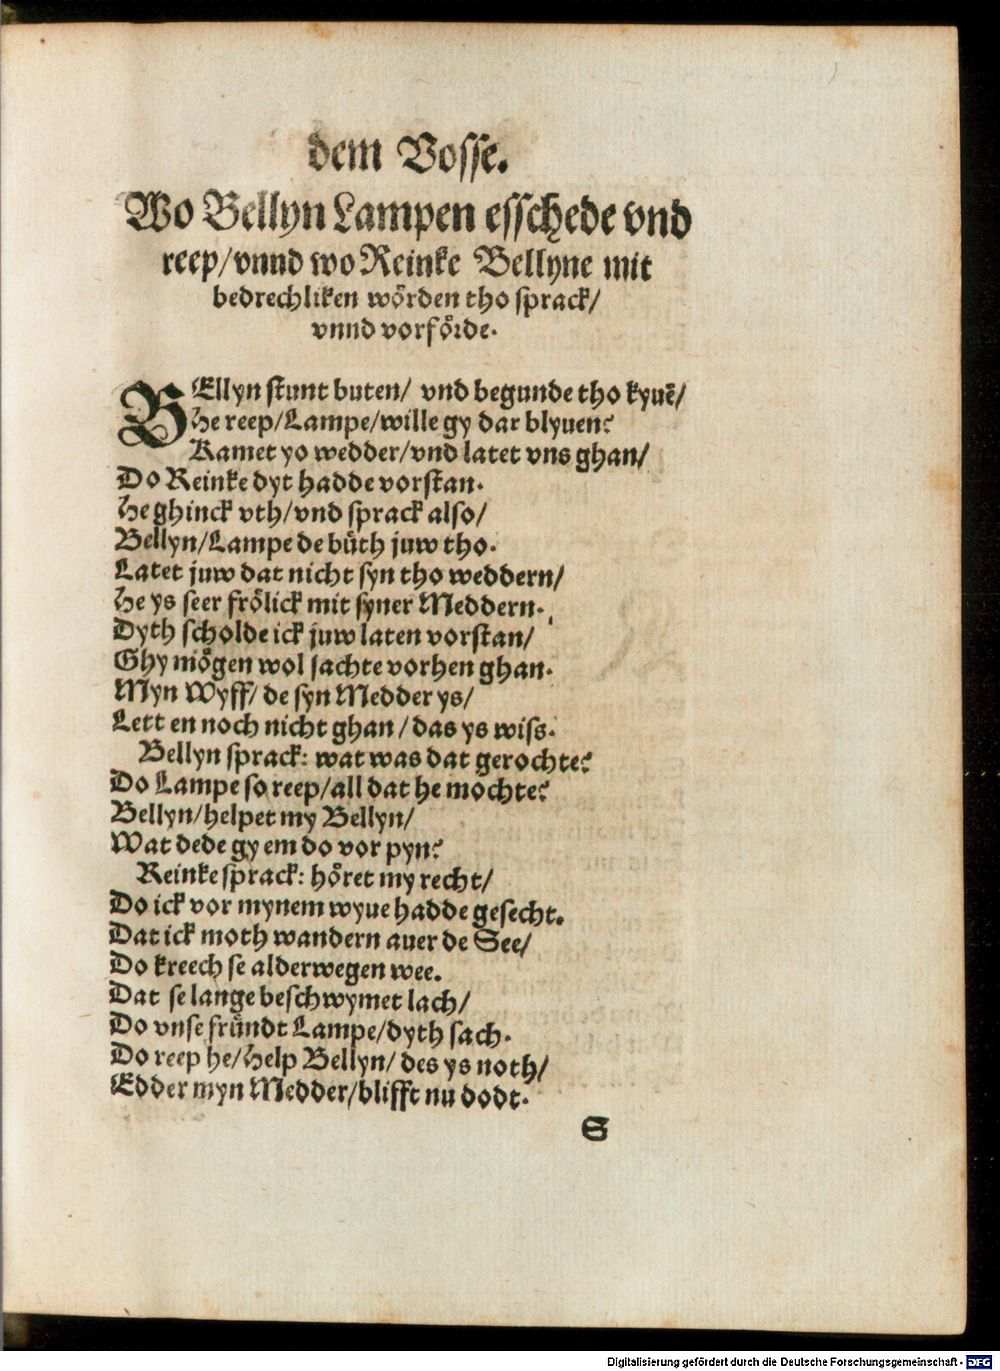 dem Vosse.
Wo Bellyn Lampen esschede vnd
reep/vnnd wo Reinke Bellyne mit
bedrechliken wörden tho sprack/
vnnd vorförde.
BEllyn stunt buten/ vnd begunde tho kyuē/
He reep/Lampe/wille gy dar blyuen?
Kamet yo wedder/vnd latet vns ghan/
Do Reinke dyt hadde vorstan.
He ghinck vth/vnd sprack also/
Bellyn/Lampe de büth juw tho.
Latet juw dat nicht syn tho weddern/
He ys seer frölick mit syner Meddern.
Dyth scholde ick juw laten vorstan/
Ghy mögen wol sachte vorhen ghan.
Myn Wyff/ de syn Medder ys/
Lett en noch nicht ghan/das ys wiss.
Bellyn sprack: wat was dat gerochte?
Do Lampe so reep/all dat he mochte?
Bellyn/helpet my Bellyn/
Wat dede gy em do vor pyn?
Reinke sprack: höret my recht/
Do ick vor mynem wyue hadde gesecht.
Dat ick moth wandern auer de See/
Do kreech se alderwegen wee.
Dat se lange beschwymet lach/
Do vnse fründt Lampe/dyth sach.
Do reep he/Help Bellyn/ des ys noth/
Edder myn Medder/blifft nu dodt.
S
Digitalisierung gefördert durch die Deutsche Forschungsgemeinschaft - DFG